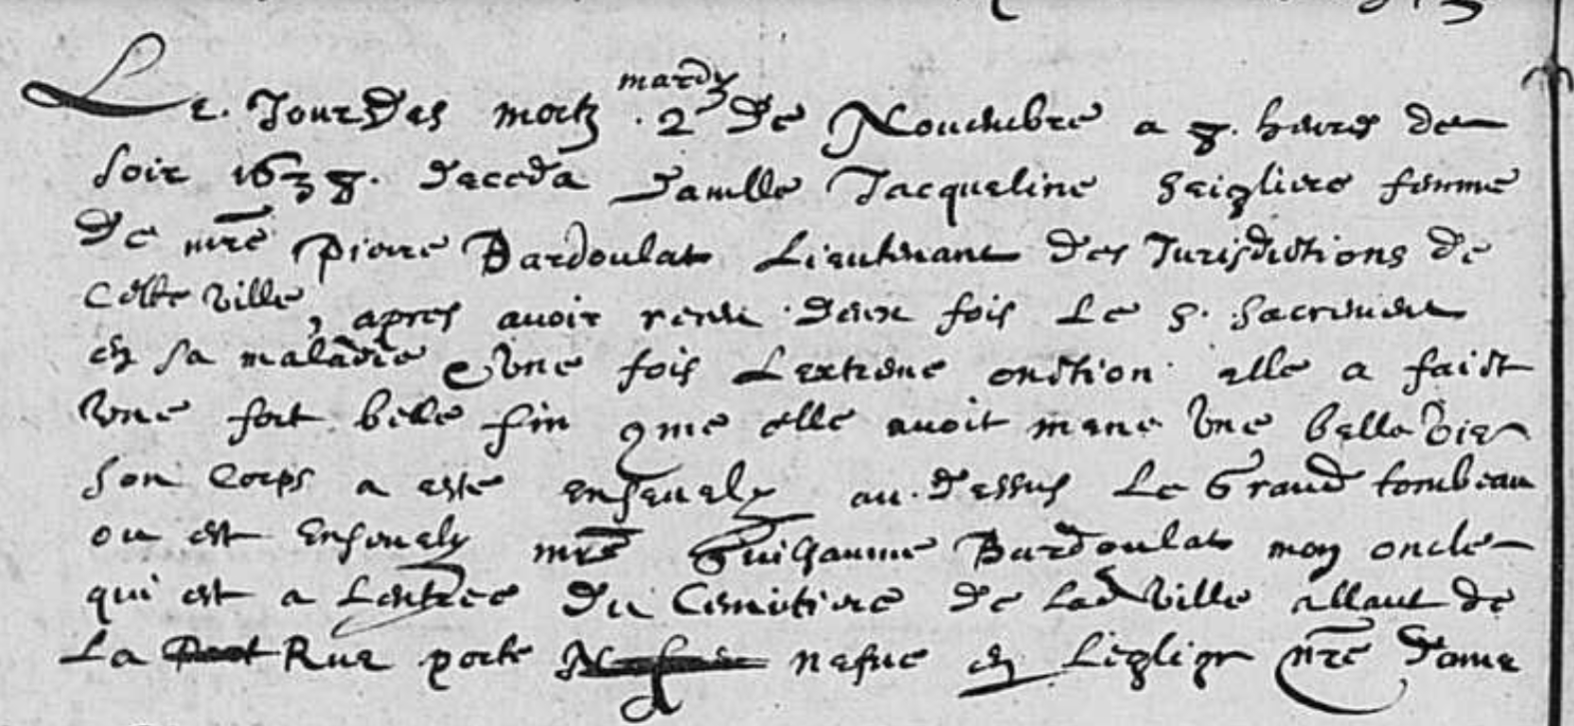 mardy
Le. Jour Des mortz . 2 De Nouembre a 8. heures de
soir 1638. deceda damlle Jacqueline Seigliere femme
De mre pierre Bardoulat Lieutenant des Jurisdictions de
Cette ville, apres auoir receu deux fois Le S. Sacrement
en sa maladie & Vne fois Lextreme onction elle a faict
Vne fort belle fin 9me elle auoit mene Vne belle vie
Son Corps a este enseuely au dessus Le Grand tombeau
ou est Enseuely mre Guilhaume Bardoulat mon oncle
qui est a Lentree du Cimetiere de Lad ville allant de
La Rue porte nefue en Leglise nre dame